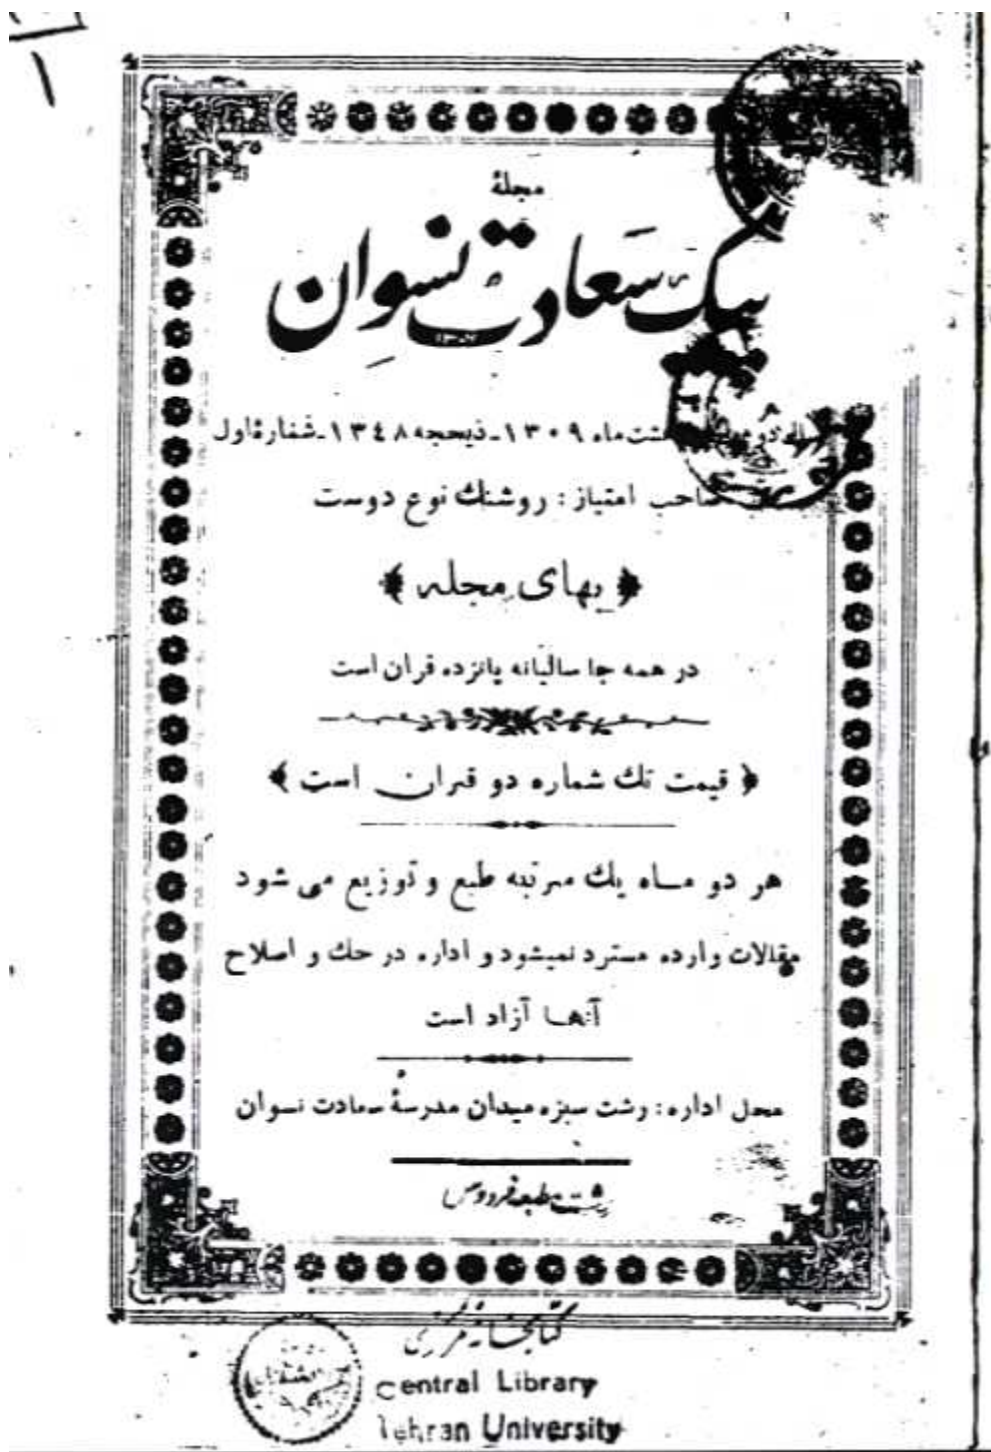 ۱
مجلهٔ
پیک سعادت نسوان
ماه ۱۳۰۹ - ذیحجه ۱۳۴۸ - شمارهٔ اول
صاحب امتیاز : روشنك نوع دوست
﴿ بهای مجله ﴾
در همه جا سالیانه پانزده قران است
﴿ قیمت تك شماره دو قران است ﴾
هر دو ماه یك مرتبه طبع و توزیع می شود
مقالات وارده مسترد نمیشود و اداره در حك و اصلاح
آنها آزاد است
محل اداره : رشت سبزه میدان مدرسهٔ سعادت نسوان
رشت مطبعه فردوسی
کتابخانه مرکزی
Central Library
Tehran University